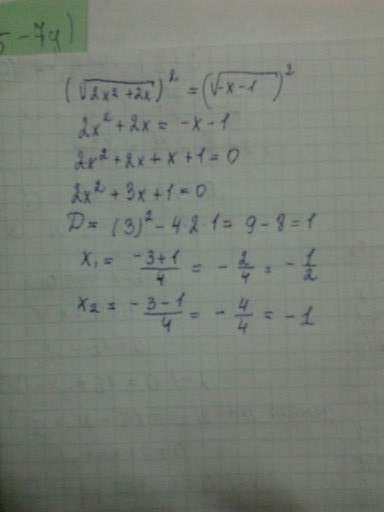 5-7у)
(√2x²+2x)² = (√-x-1)²
2x²+2x = -x-1
2x²+2x+x+1=0
2x²+3x+1=0
D= (3)²-4·2·1= 9-8=1
x₁= -3+1/4 = -2/4 = -1/2
x₂= -3-1/4 = -4/4 = -1